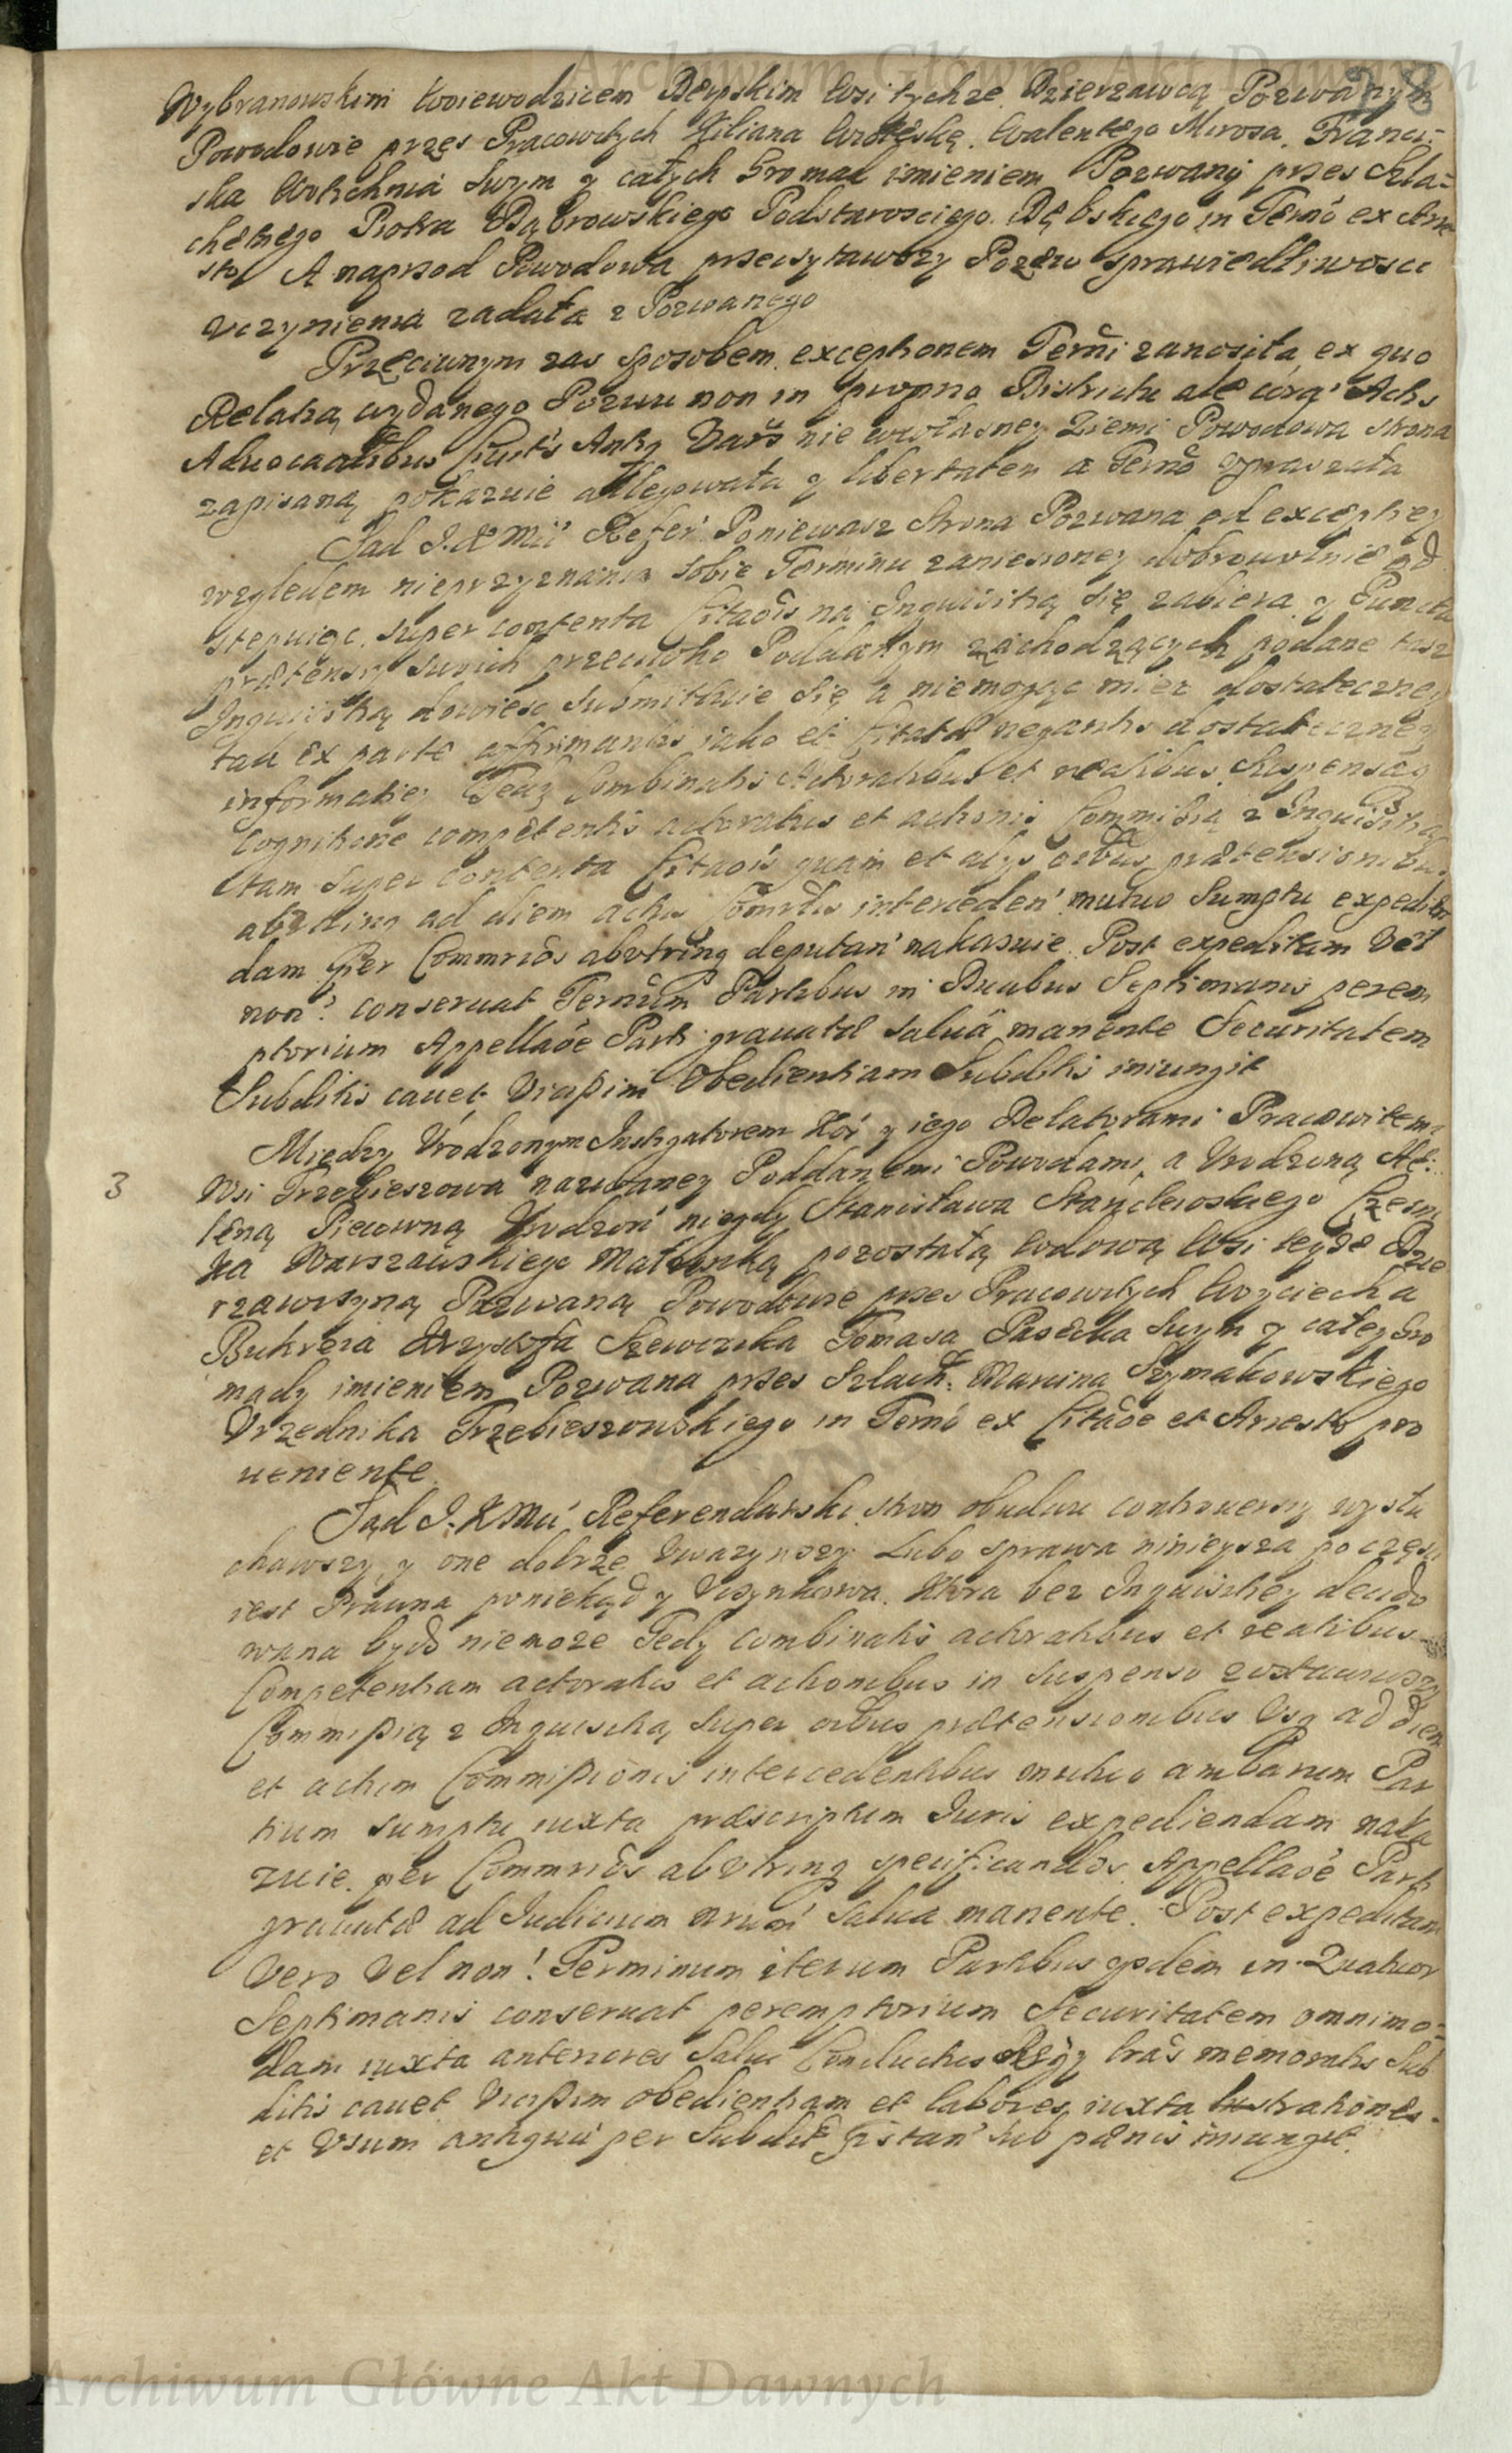 Archiwum Główne Akt Dawnych
Wybranowskim Woiewodzicem Brzyskim Wsi tychze Dzierzawcą Pozwanym
Powodowie przes Pracowitych Kiliana Walentego Mroza, Franci-
ska swym y całych Gromad imieniem Pozwany przes Szla-
chetnego Piotra Dąbrowskiego Podstarosciego Dębskiego in Termo ex Arre
sto, A naprzod Powodowa przeczytawszy Pozew sprawiedliwosci
uczynienia ządała z Pozwanego
Przeciwnym zas sposobem exceptionem Termi zanosiła ex quo
Relatią wydanego Pozwu non in proprio Districtu ale Actis
Aduocatialibus Ciuitis Antiq Vars nie wwłasney Ziemi Powodowa strona
zapisaną pokazuie allegowała y libertatem a Termo vpraszała
Sąd J. K Mci Refer Poniewasz Strona Pozwana od exceptiey
względem nieprzyznania sobie Terminu zaniesioney dobrowolnie od
stępuięc, super contenta Citaois na Inquisitią się zabiera y Puncta
prætensy swoich przeciwko Poddanym zachodzących podane tasz
Inquisitią dowiesc submittuie się a niemogąc miec dostateczney
tau ex parte affirmantis iako et Citatæ negantis dostateczney
informatiey Tedy Combinatis Actoratibus et reatibus, Suspensa
Cognitione competentis actoratus et actionis Commissią z Inquisitią
tam super contenta Citaois quam et alys oibus prætensionibus
abvtrinq ad diem actus Comrdis interceden mutuo Sumptu expedien
dam per Commrios abvtrinq deputan nakazuie. Post expeditam Vel
non? conseruat Termum Partibus in Duabus Septimanis perem
ptorium Appellaoe Parti grauatæ salua manente Securitatem
Subditis cauet Vicissim Obedientiam Subditis iniungit
3
Między Vrodzonym Instigatorem Kor y iego Delatorami Pracowitemi
Wsi Trzebieszowa nazwaney Poddanemi Powodami, a Vrodzoną He-
leną Piwną Vrodzon niegdy Stanisława Stanisławskiego Czesni
ka Warszawskiego Małżonką pozostałą wdową Wsi teyże Dzie
rzawczyną Pozwaną Powodowie przes Pracowitych Woyciecha
Bukręia Krzysztofa Szewczyka Tomasza Pasieka swym y całey Gro
mady imieniem Pozwana przes Szlach: Marcina Szymakowskiego
Vrzędnika Trzebieszowskiego in Termo ex Citaoe et Arresto pro
ueniente
Sąd J. K Mci Referendarski stron obudwu controuersy wysłu
chawszy, y one dobrze Vwazywszy Lubo sprawa ninieysza po częsci
iest Prawna poniekąd y Vczynkowa. Ktora bez Inquisitiey decido
wana bydz niemoze Tedy combinatis actoratibus et reatibus
Competentiam actoratus et actionibus in suspenso zostawuwszy
Commissią z Inquisitią super oibus prætensionibus Vsq ad diem
et actum Commissionis intercedentibus mutuo ambarum Par
tium sumptu iuxta præscriptum Iuris expediendam naka
zuie per Commrios abvtrinq specificandos, Appellaoe Parti
grauatæ ad Iudicium salua manente. Post expeditam
Vero Vel non! Terminum iterum Partibus ijsdem in Quatuor
Septimanis conseruat peremptorium Securitatem omnimo-
dam iuxta anteriores Salui Conductus Regÿ lras memoratis Sub
ditis cauet Vicissim obedientiam et labores iuxta lustrationes
et Vsum antiquu per Subditos sub pænis iniungit.
Archiwum Główne Akt Dawnych